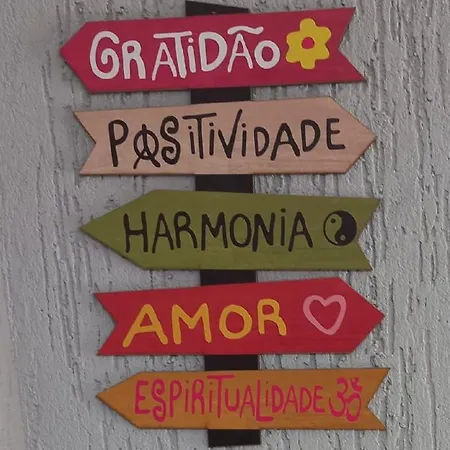 GRATIDÃO
POSITIVIDADE
HARMONIA
AMOR
ESPIRITUALIDADE ॐ